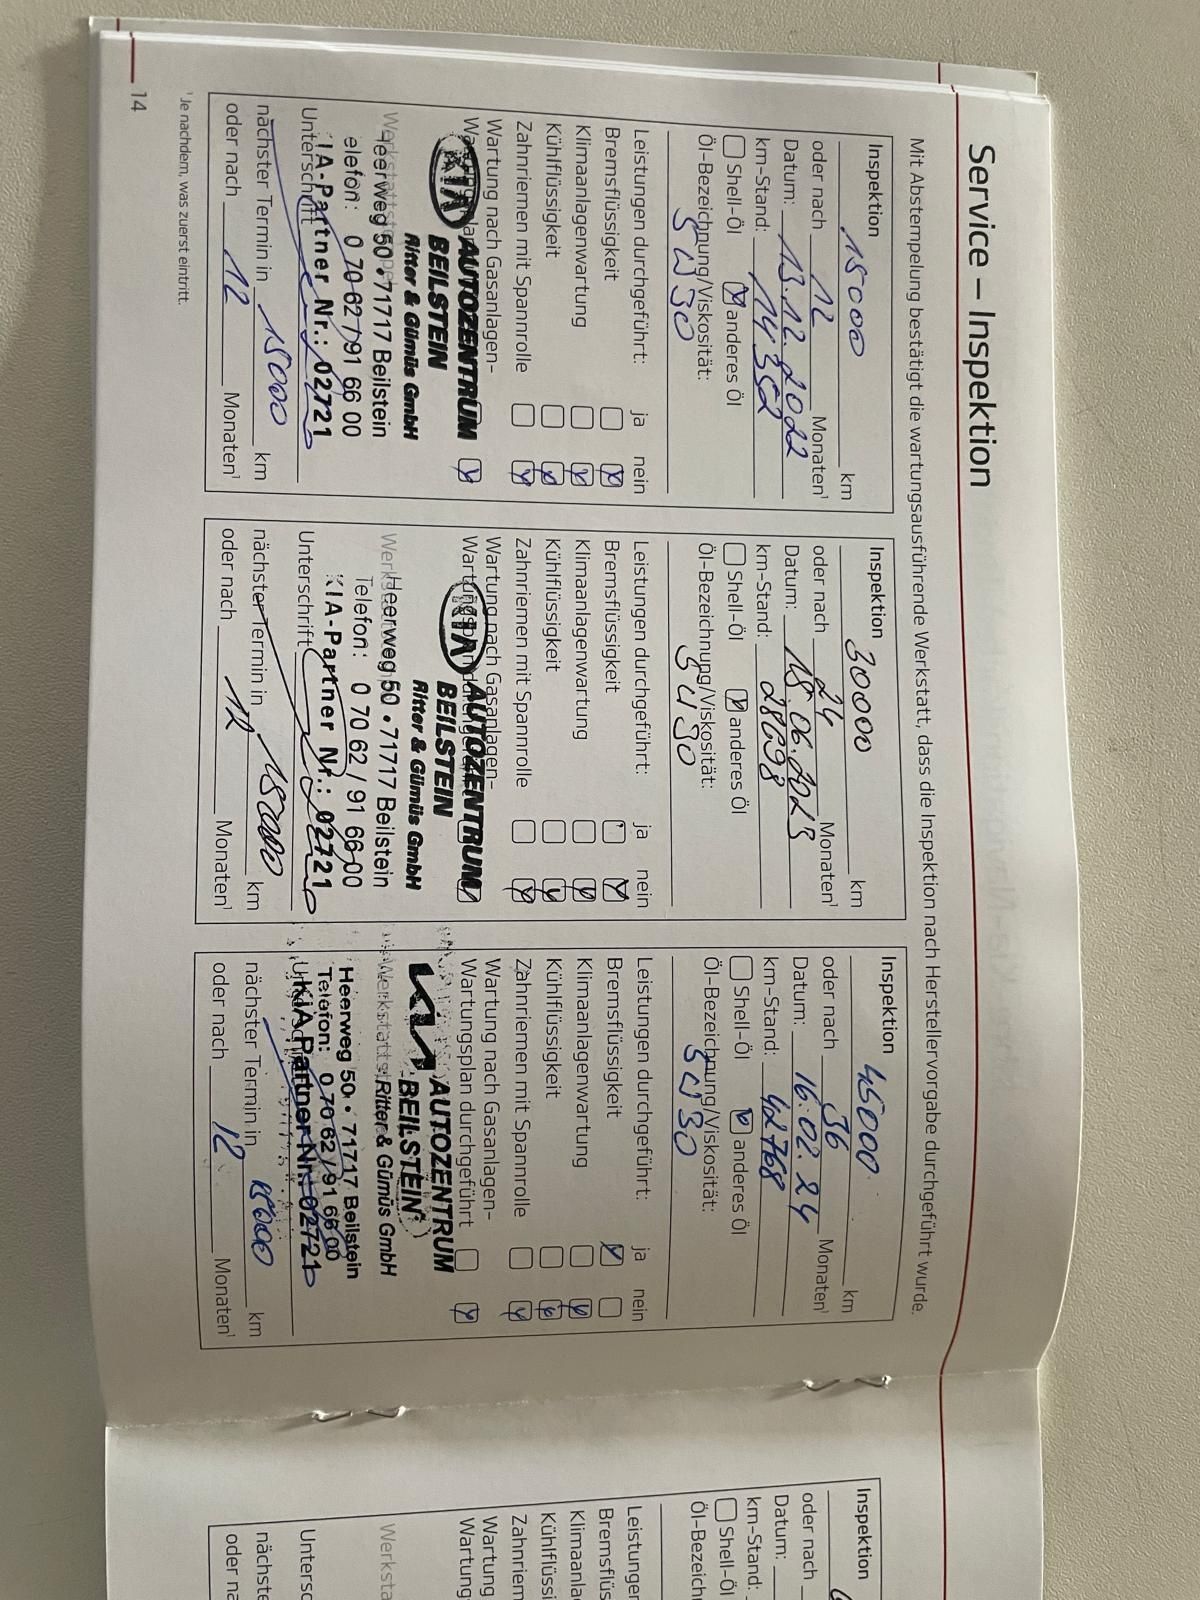 Service – Inspektion
Mit Abstempelung bestätigt die wartungsausführende Werkstatt, dass die Inspektion nach Herstellervorgabe durchgeführt wurde.
Inspektion 15000 km
oder nach 12 Monaten¹
Datum: 13.12.2022
km-Stand: 14352
Shell-Öl anderes Öl
Öl-Bezeichnung/Viskosität:
5W30
Leistungen durchgeführt: ja nein
Bremsflüssigkeit
Klimaanlagenwartung
Kühlflüssigkeit
Zahnriemen mit Spannrolle
Wartung nach Gasanlagen-
KIA AUTOZENTRUM
BEILSTEIN
Ritter & Gümüs GmbH
Heerweg 50 • 71717 Beilstein
elefon: 0 70 62 / 91 66 00
KIA-Partner Nr.: 02721
Unterschrift
nächster Termin in 15000 km
oder nach 12 Monaten¹
Inspektion 30000 km
oder nach 24 Monaten¹
Datum: 15.06.2023
km-Stand: 28098
Shell-Öl anderes Öl
Öl-Bezeichnung/Viskosität:
5W30
Leistungen durchgeführt: ja nein
Bremsflüssigkeit
Klimaanlagenwartung
Kühlflüssigkeit
Zahnriemen mit Spannrolle
Wartung nach Gasanlagen-
KIA AUTOZENTRUM
BEILSTEIN
Ritter & Gümüs GmbH
Heerweg 50 • 71717 Beilstein
Telefon: 0 70 62 / 91 66 00
KIA-Partner Nr.: 02721
Unterschrift
nächster Termin in 15000 km
oder nach 12 Monaten¹
Inspektion 45000 km
oder nach 36 Monaten¹
Datum: 16.02.24
km-Stand: 42768
Shell-Öl anderes Öl
Öl-Bezeichnung/Viskosität:
5W30
Leistungen durchgeführt: ja nein
Bremsflüssigkeit
Klimaanlagenwartung
Kühlflüssigkeit
Zahnriemen mit Spannrolle
Wartung nach Gasanlagen-
Wartungsplan durchgeführt
KIA AUTOZENTRUM
BEILSTEIN
Ritter & Gümüs GmbH
Heerweg 50 • 71717 Beilstein
Telefon: 0 70 62 / 91 66 00
KIA Partner Nr. 02721
nächster Termin in 15000 km
oder nach 12 Monaten¹
¹ Je nachdem, was zuerst eintritt.
14
Inspektion
oder nach
Datum:
km-Stand:
Shell-Öl
Öl-Bezeich
Leistungen
Bremsflüs
Klimaanla
Kühlflüssi
Zahnriem
Wartung
Wartung
Werksta
Untersc
nächste
oder na